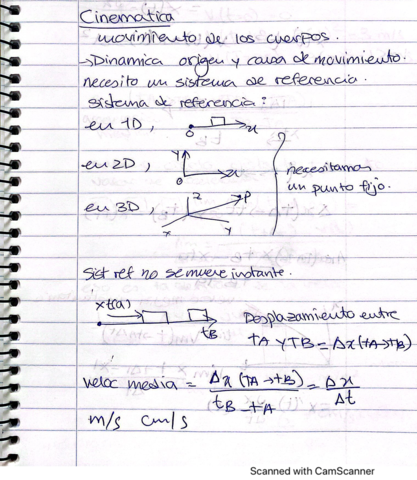 Cinematica
movimiento de los cuerpos.
→Dinamica origen y causa de movimiento.
necesito un sistema de referencia.
sistema de referencia:
en 1D, O x
en 2D, Y x O
en 3D, z P x y
necesitamos
un punto fijo.
Sist ref no se mueve instante.
x(tA)
tB
Desplazamiento entre
tA Y TB = Δx(tA→tB)
veloc media = Δx (tA→tB) / tB - tA = Δx / Δt
m/s cm/s
Scanned with CamScanner